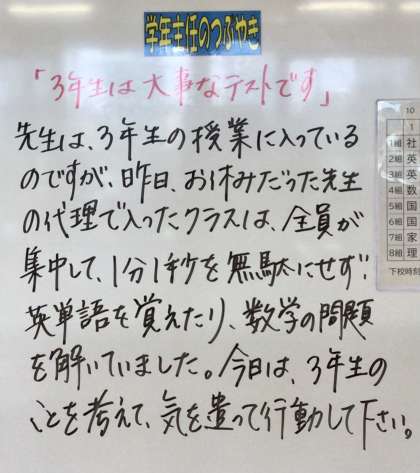 学年主任のつぶやき
「3年生は大事なテストです」
先生は、3年生の授業に入っている
のですが、昨日、お休みだった先生
の代理で入ったクラスは、全員が
集中して、1分1秒を無駄にせず、
英単語を覚えたり、数学の問題
を解いていました。今日は、3年生の
ことを考えて、気を遣って行動して下さい。
10
1
1組 社
2組 英
3組 英
4組 数
5組 国
6組 国
7組 家
8組 理
下校時刻